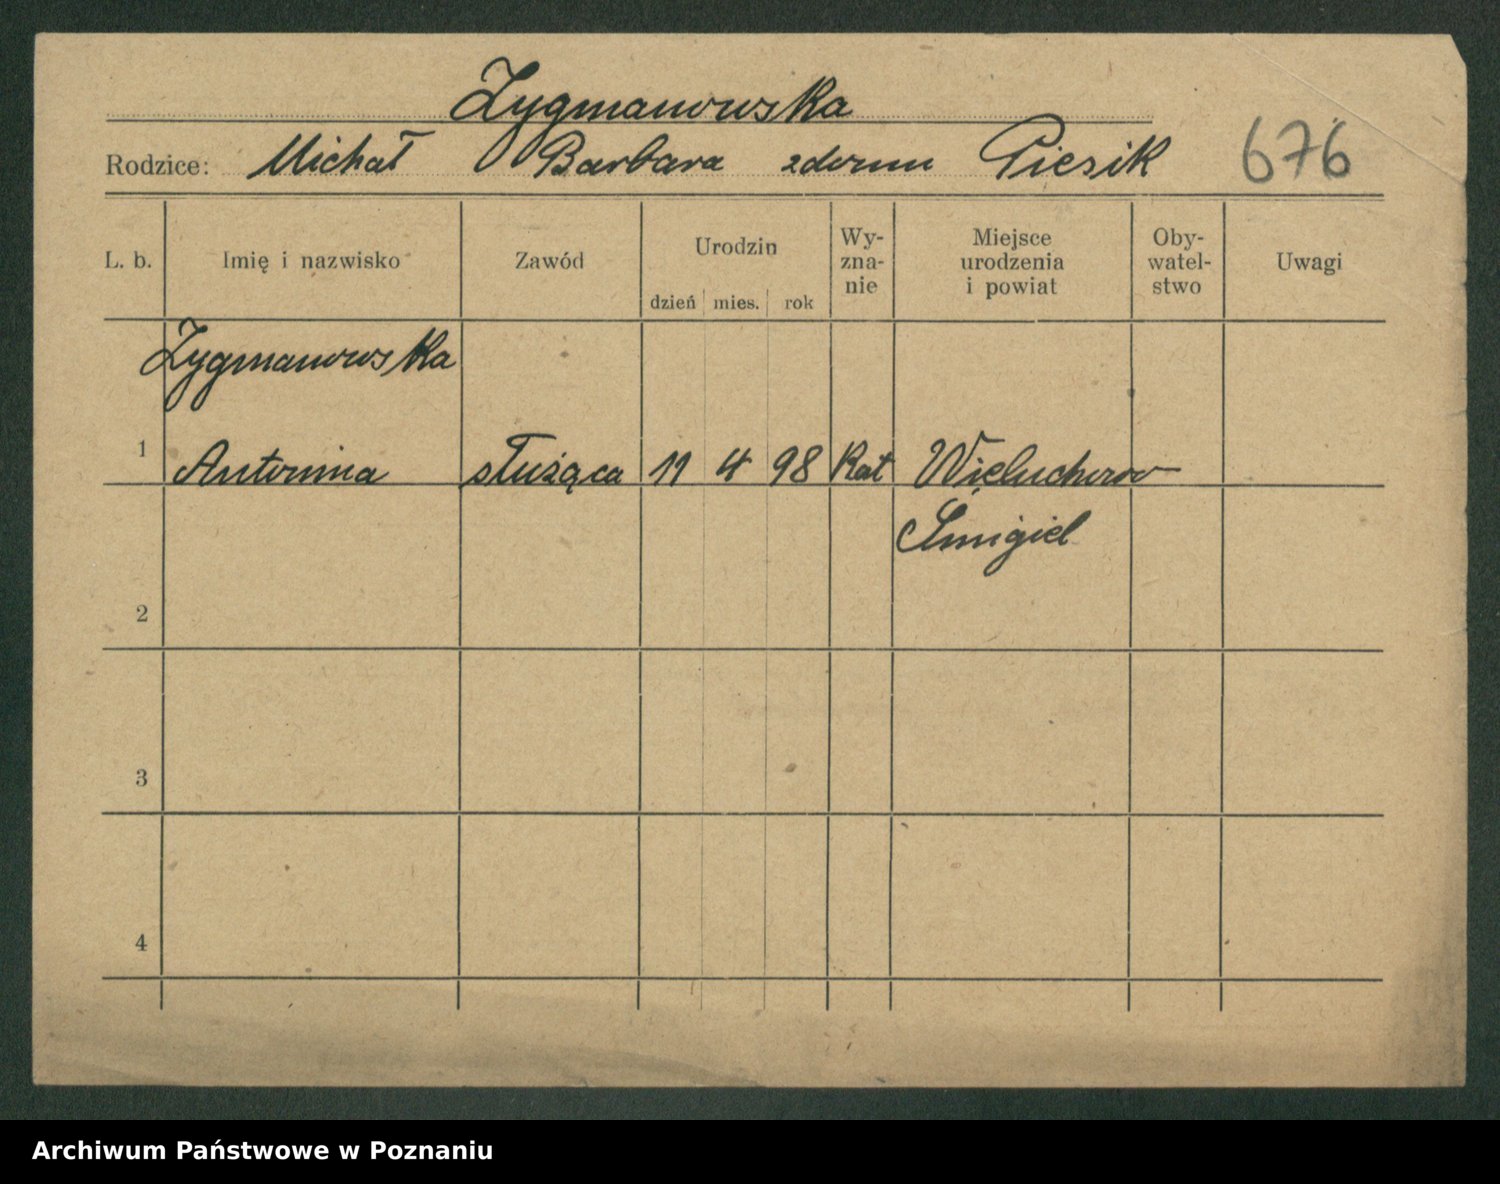 Zygmanowska
Rodzice: Michał Barbara zdomu Piesik 676
L. b. Imię i nazwisko Zawód Urodzin dzień mies. rok Wy-zna-nie Miejsce urodzenia i powiat Oby-watel-stwo Uwagi
Zygmanowska
1 Antonina służąca 11 4 98 Kat Wieluchowo
Śmigiel
2
3
4
Archiwum Państwowe w Poznaniu